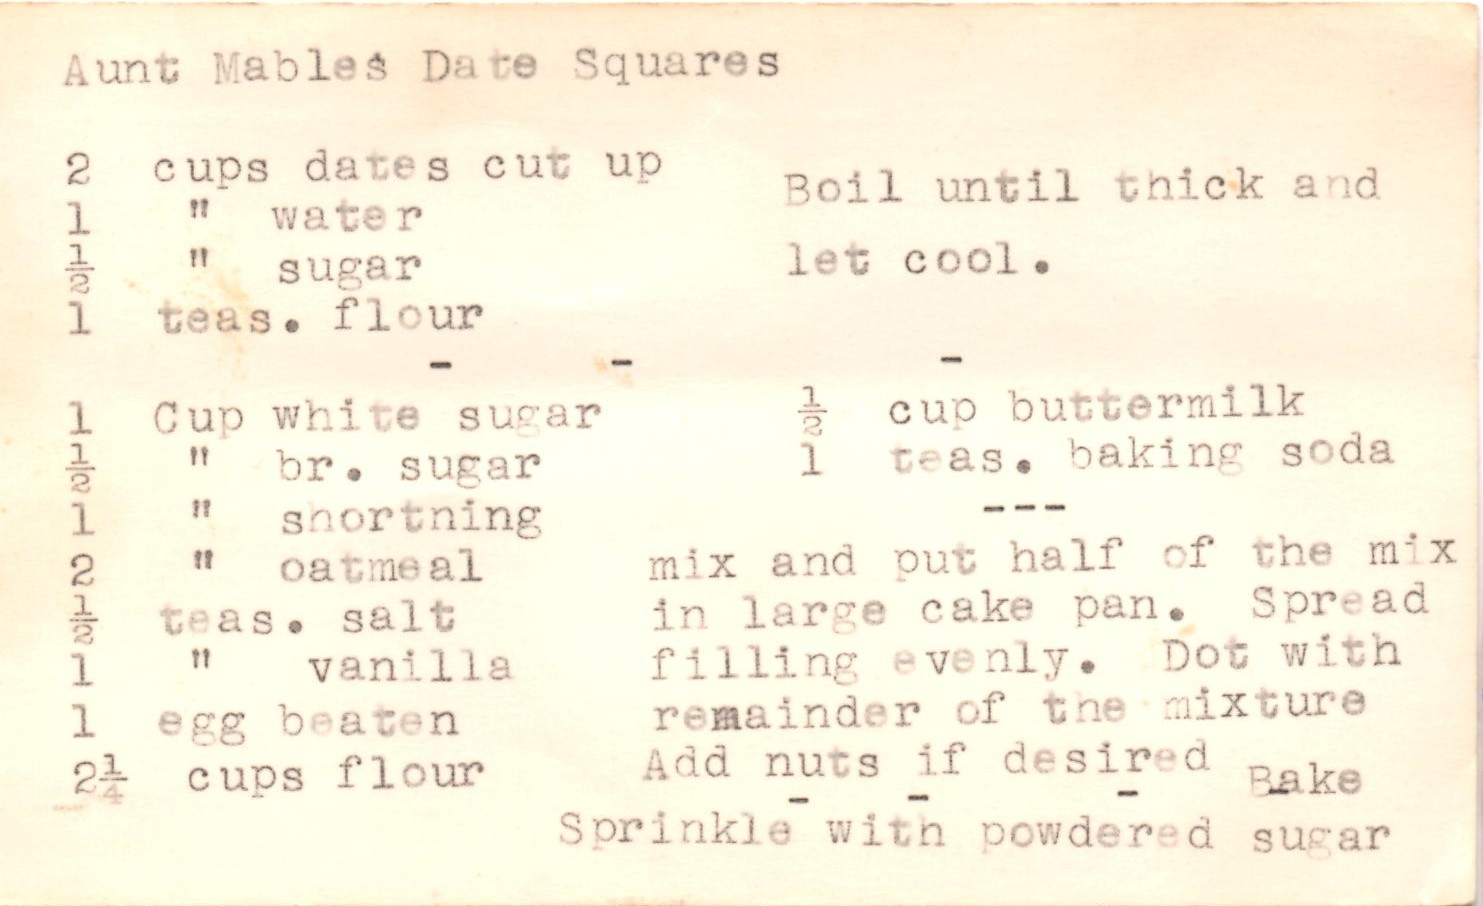 Aunt Mables Date Squares
2 cups dates cut up
1 " water
½ " sugar
1 teas. flour
Boil until thick and
let cool.
- - -
1 Cup white sugar
½ " br. sugar
1 " shortning
2 " oatmeal
½ teas. salt
1 " vanilla
1 egg beaten
2¼ cups flour
½ cup buttermilk
1 teas. baking soda
---
mix and put half of the mix
in large cake pan. Spread
filling evenly. Dot with
remainder of the mixture
Add nuts if desired Bake
- - - -
Sprinkle with powdered sugar